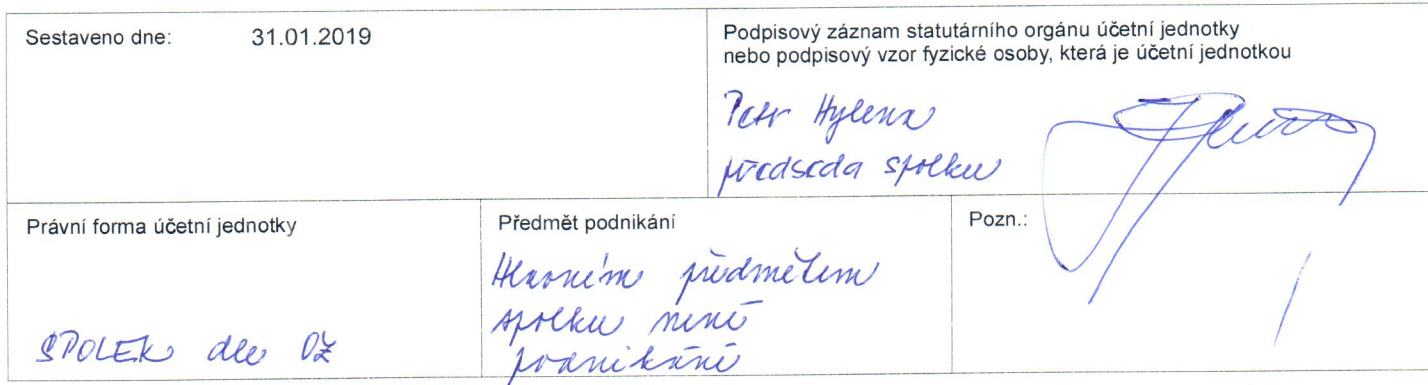 Sestaveno dne: 31.01.2019
Podpisový záznam statutárního orgánu účetní jednotky
nebo podpisový vzor fyzické osoby, která je účetní jednotkou
Petr Hylena
předseda spolku
Právní forma účetní jednotky
SPOLEK dle OZ
Předmět podnikání
Hlavním předmětem
spolku není
podnikání
Pozn.: